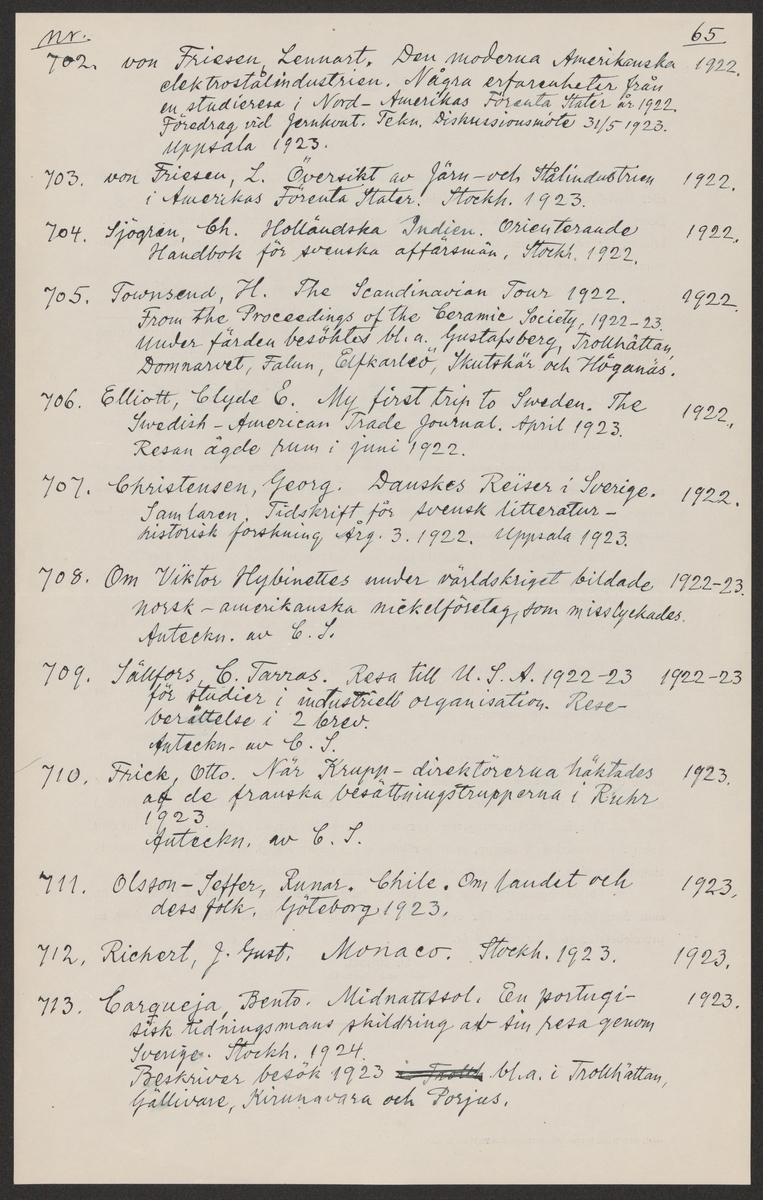 nr. 65
702. von Friesen, Lennart. Den moderna Amerikanska 1922.
elektrostålindustrien. Några erfarenheter från
en studieresa i Nord-Amerikas Förenta Stater år 1922.
Föredrag vid Jernkont. Tekn. Diskussionsmöte 31/5 1923.
Uppsala 1923.
703. von Friesen, L. Översikt av Järn- och Stålindustrien 1922.
i Amerikas Förenta Stater. Stockh. 1923.
704. Sjögren, Ch. Holländska Indien. Orienterande 1922.
Handbok för svenska affärsmän. Stockh. 1922.
705. Townsend, H. The Scandinavian Tour 1922. 1922.
From the Proceedings of the Ceramic Society, 1922-23.
Under färden besöktes bl. a. Gustafsberg, Trollhättan,
Domnarvet, Falun, Elfkarleö, Skutskär och Höganäs.
706. Elliott, Clyde E. My first trip to Sweden. The 1922.
Swedish-American Trade Journal. April 1923.
Resan ägde rum i juni 1922.
707. Christensen, Georg. Danskes Reiser i Sverige. 1922.
Samlaren. Tidskrift för svensk litteratur-
historisk forskning Årg. 3. 1922. Uppsala 1923.
708. Om Viktor Hybinettes under världskriget bildade 1922-23.
norsk-amerikanska nickelföretag, som misslyckades.
Anteckn. av C. S.
709. Sällfors, C. Tarras. Resa till U. S. A. 1922-23 1922-23
för studier i industriell organisation. Rese-
berättelse i 2 brev.
Anteckn. av C. S.
710. Frick, Otto. När Krupp-direktörerna häktades 1923.
af de franska besättningstrupperna i Ruhr
1923
Anteckn. av C. S.
711. Olsson-Seffer, Runar. Chile. Om landet och 1923.
dess folk. Göteborg 1923.
712. Richert, J. Gust. Monaco. Stockh. 1923. 1923.
713. Carqueja, Bento. Midnattssol. En portugi- 1923.
sisk tidningsmans skildring av sin resa genom
Sverige. Stockh. 1924.
Beskriver besök 1923 i Trollh bl. a. i Trollhättan,
Gällivare, Kirunavara och Porjus.